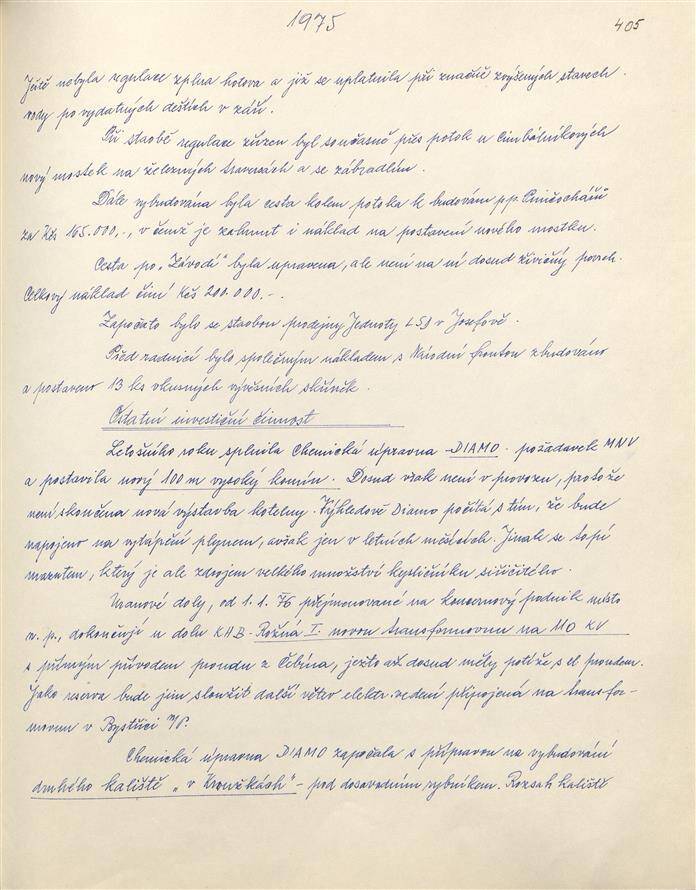 1975
405
Ještě nebyla regulace zplna hotova a již se uplatnila při značně zvýšených stavech
vody po vydatných deštích v září.
Při stavbě regulace zřízen byl současně přes potok u Cimbálníkových
nový mostek na železných traversách a se zábradlím.
Dále vybudována byla cesta kolem potoka k budovám pp.
za Kčs 165.000,-, v čemž je zahrnut i náklad na postavení nového mostku.
Cesta po „Závodí" byla upravena, ale není na ní dosud živičný povrch.
Celkový náklad činí Kčs 200.000.-.
Započato bylo se stavbou prodejny Jednoty LSD v Josefově.
Před radnicí bylo společným nákladem s Národní frontou zbudováno
a postaveno 13 ks vkusných vývěsních skříněk.
Ostatní investiční činnost
Letošního roku splnila Chemická úpravna -DIAMO- požadavek MNV
a postavila nový 100 m vysoký komín. Dosud však není v provozu, protože
není skončena nová výstavba kotelny. Výhledově Diamo počítá s tím, že bude
napojeno na vytápění plynem, avšak jen v letních měsících. Jinak se topí
mazutem, který je ale zdrojem velkého množství kysličníku siřičitého.
Uranové doly, od 1. 1. 76 přejmenované na koncernový podnik místo
n. p., dokončují u dolu KHB- Rožná I. novou transformovnu na 110 KV
s přímým přívodem proudu z Čebína, ježto až dosud měly potíže s el proudem.
Jako reserva bude jim sloužit další větev elektr. vedení připojená na transfor-
movnu v Bystřici n/P.
Chemická úpravna DIAMO započala s přípravou na vybudování
druhého kaliště „v - pod dosavadním rybníkem. Rozsah kaliště